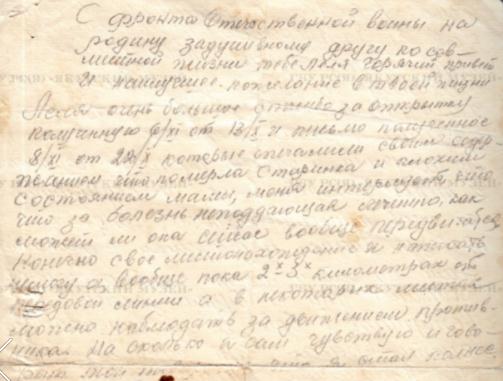 С фронта Отечественной войны на
родину задушевному другу по сов-
местной жизни тебе Леля горячий привет
и наилучшие пожелание в твоей жизни
Леля очень большое спасибо за открытку
полученную 6/XI от 13/X и письмо полученное
8/XI от 22/X которые опечалили своим содер-
жанием что померла старинка и плохим
состоянием мамы, меня интересует
что за болезнь неподдающая лечению, как
может ли она сейчас вообще передвигаться
Конечно свое местонахождение я написать
не могу а вообще пока 2х-3х километрах от
передовой линии а в некоторых местах
можно наблюдать за движением против-
ника. На сколько я сам чувствую и гово-
рят мои что я стал полнее